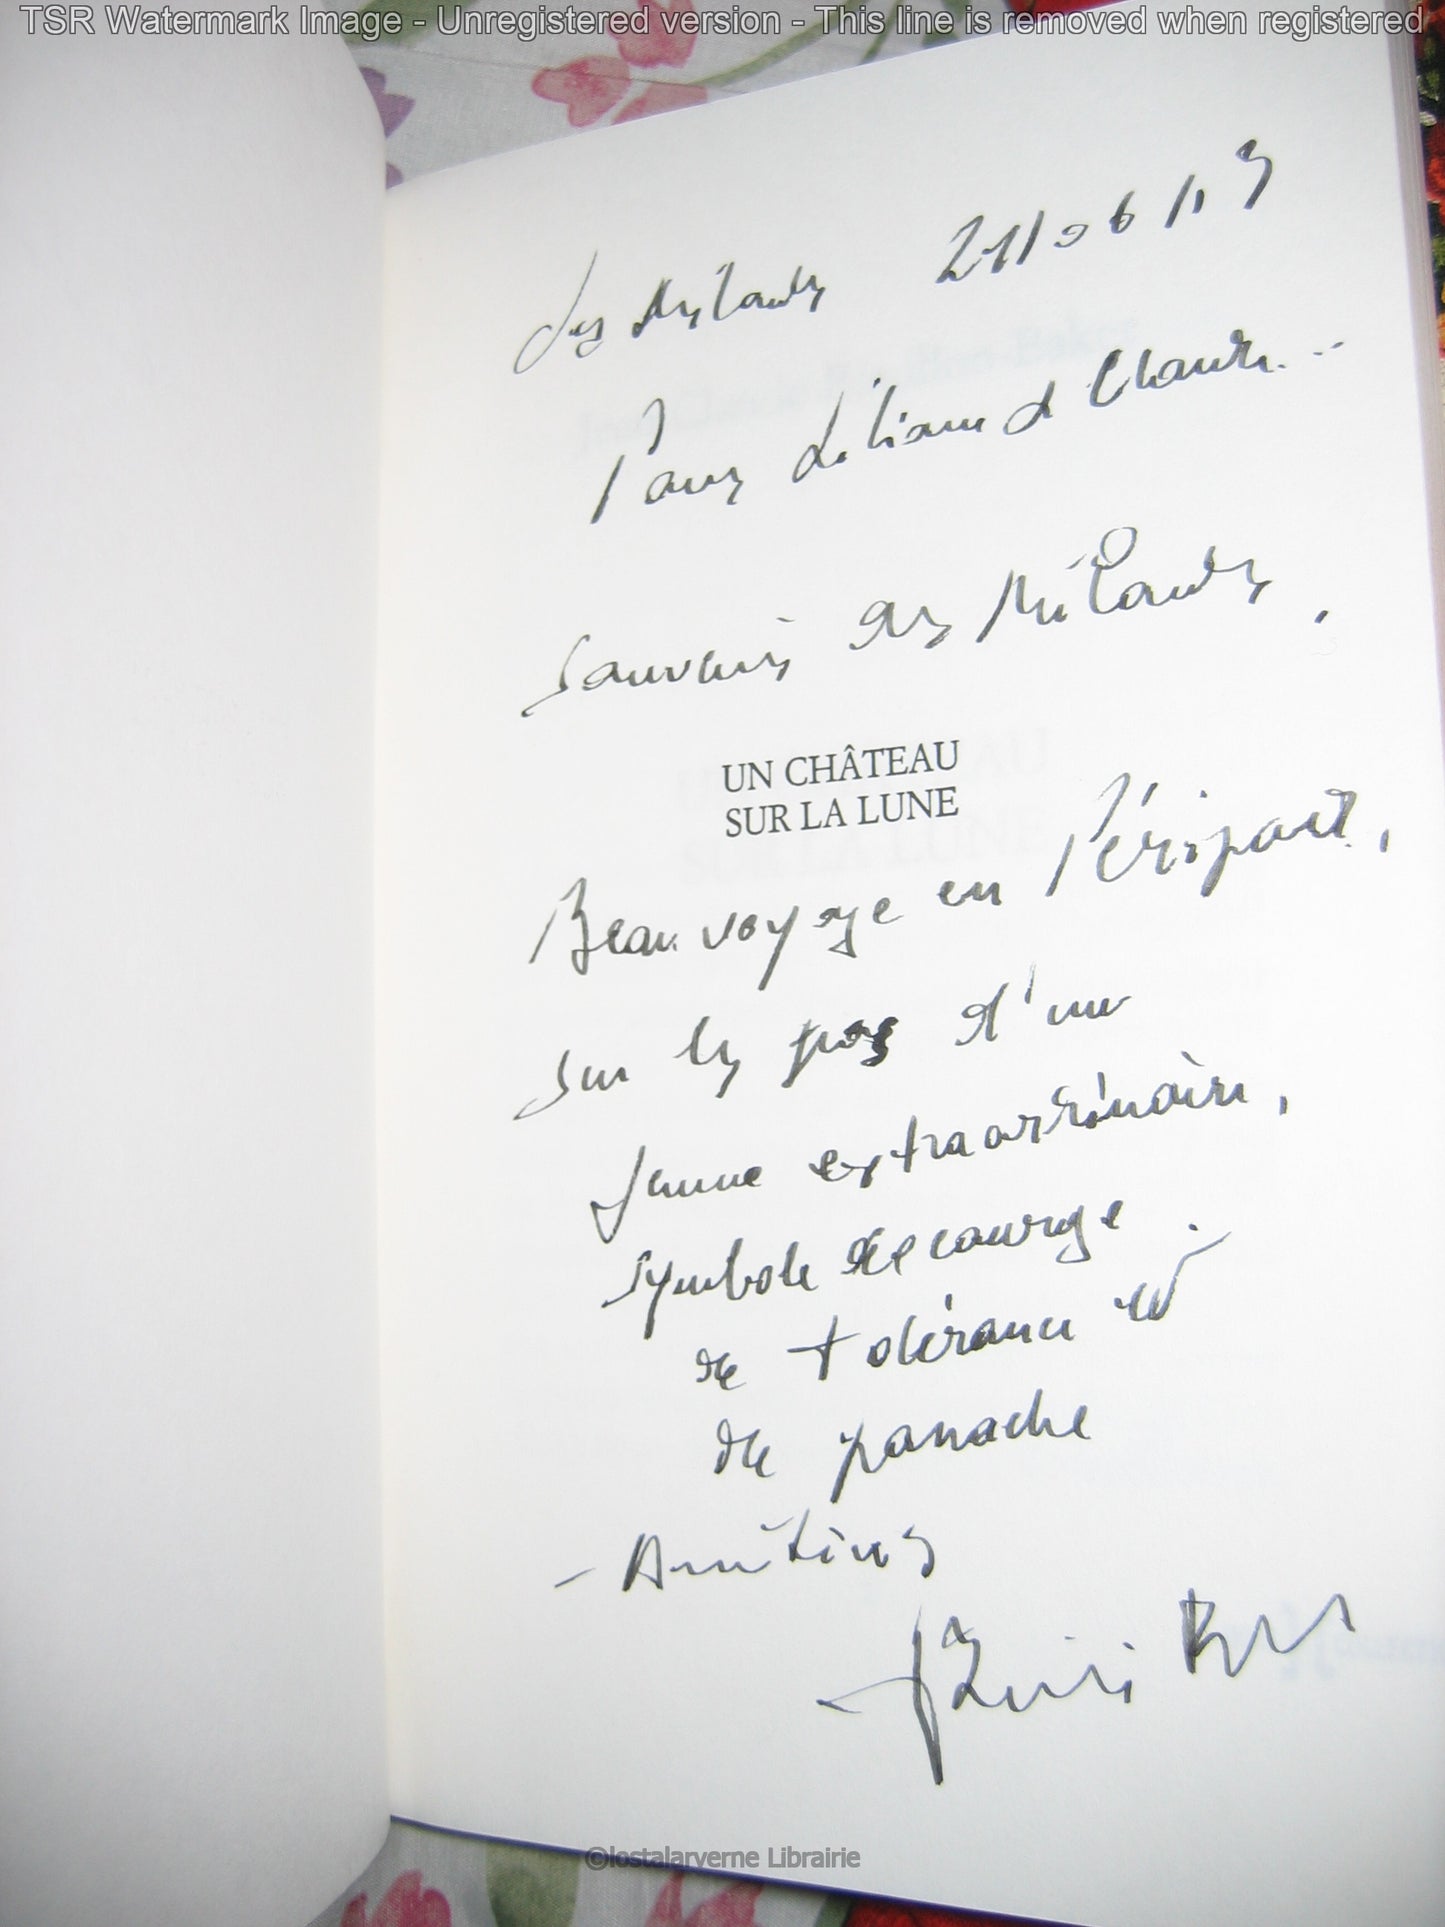 TSR Watermark Image - Unregistered version - This line is removed when registered
Les Milandes 21/06/13
Pour Liliane et Claude...
Souvenirs des Milandes,
UN CHÂTEAU
SUR LA LUNE
Beau voyage en Périgord,
sur les pas d'une
femme extraordinaire,
symbole de courage
de tolérance et
de panache
- Amitiés
©lostalarverne Librairie